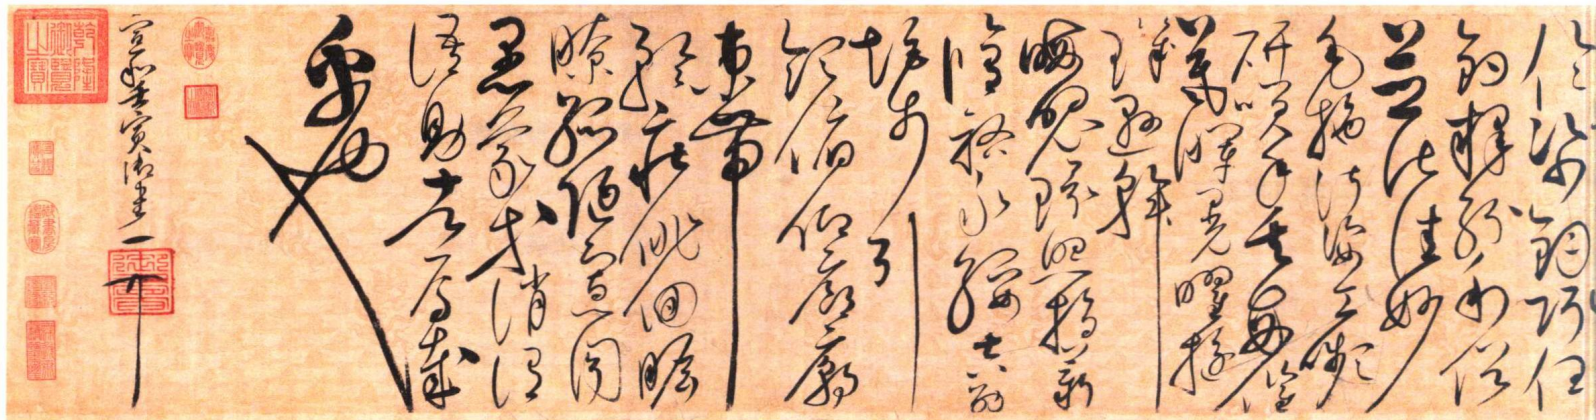 倫紙鈞巧任
釣釋紛利俗
並皆佳妙
毛施淑姿工顰
妍笑年矢每催
羲暉晃曜璇
璣懸斡
晦魄環照指薪
脩祜永綏吉劭
矩步引
領俯仰廊廟
束帶
矜莊徘徊瞻
眺孤陋寡聞
愚蒙等誚謂
語助者焉哉
乎也
宣和壬寅御書
御書
乾隆御覽之寶